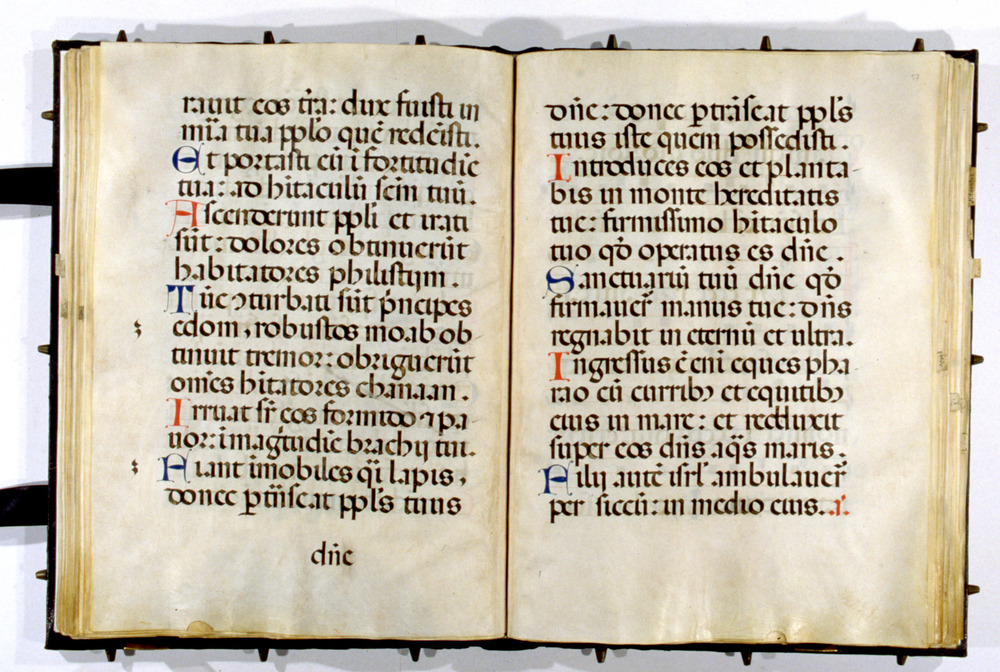 rauit eos tr̄a: dux fuisti in
mīa tua pplo quē redeisti.
Et portasti eū ī fortitudīe
tua: ad hītaculū scm̄ tuū.
Ascenderunt ppli et irati
sūt: dolores obtinuerūt
habitatores philistijm.
Tūc ꝯturbati sūt pͥncipes
edom, robustos moab ob-
tinuit tremor: obriguerūt
om̄es hītatores chanaan.
Irruat sr̄ eos formido ⁊ pa-
uor: ī magn̄tudīe brachij tui.
Fiant īmobiles qͣi lapis,
donec ꝑtrāseat ppl's tuus
dn̄e
dn̄e: donec ꝑtrāseat ppl's
tuus iste quem possedisti.
Introduces eos et planta-
bis in monte hereditatis
tue: firmissimo hītaculo
tuo qď operatus es dn̄e.
Sanctuariū tuū dn̄e qď
firmauer̄ manus tue: dn̄s
regnabit in eternū et ultra.
Ingressus ē enī eques pha-
rao cū curribꝫ et equitibꝫ
eius in mare: et reduxit
super eos dn̄s aq̄s maris.
Filij autē isrl' ambulauer̄
per siccū: in medio eius.